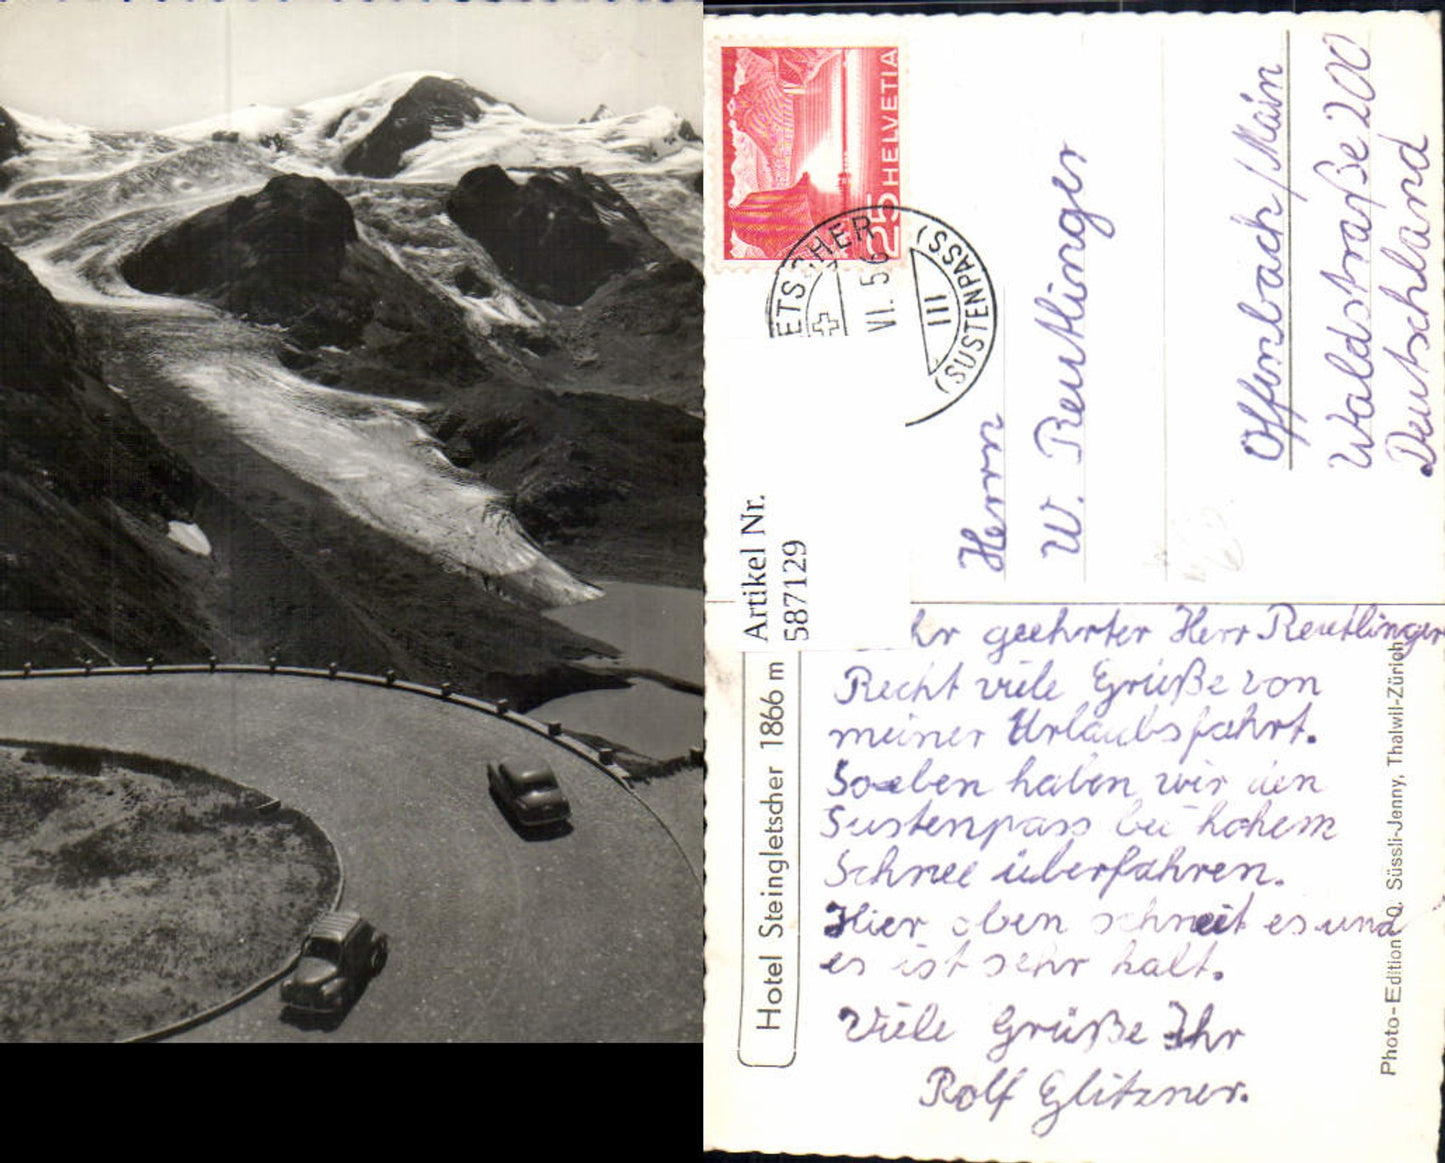 HELVETIA
25
VI. 5
III
(SUSTENPASS)
Artikel Nr.
587129
Herrn
W. Reutlinger
Offenbach/Main
Waldstraße 200
Deutschland
hr geehrter Herr Reutlinger
Recht viele Grüße von
meiner Urlaubsfahrt.
Soeben haben wir den
Sustenpass bei hohem
Schnee überfahren.
Hier oben schneit es und
es ist sehr kalt.
Viele Grüße Ihr
Rolf Glitzner.
Hotel Steingletscher 1866 m
Photo-Edition O. Süssli-Jenny, Thalwil-Zürich